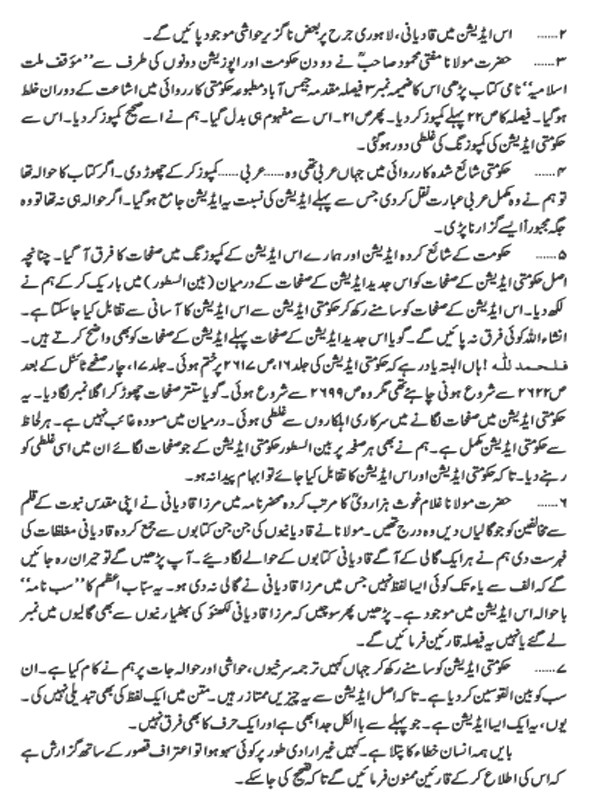 ۲...... اس ایڈیشن میں قادیانی، لاہوری جرح پر بعض ناگزیر حواشی موجود پائیں گے۔
۳...... حضرت مولانا مفتی محمود صاحبؒ نے دو دن حکومت اور اپوزیشن دونوں کی طرف سے ’’مؤقف ملت
اسلامیہ‘‘ نامی کتاب پڑھی اس کا ضمیمہ نمبر۳ فیصلہ مقدمہ جیمس آباد مطبوعہ حکومتی کارروائی میں اشاعت کے دوران غلط
ہوگیا۔ فیصلہ کا ص۲۲ پہلے کمپوز کر دیا۔ پھر ص۲۱۔ اس سے مفہوم ہی بدل گیا۔ ہم نے اسے صحیح کمپوز کر دیا۔ اس سے
حکومتی ایڈیشن کی کمپوزنگ کی غلطی دور ہوگئی۔
۴...... حکومتی شائع شدہ کارروائی میں جہاں عربی تھی وہ...... عربی...... کمپوز کر کے چھوڑ دی۔ اگر کتاب کا حوالہ تھا
تو ہم نے وہ مکمل عربی عبارت نقل کر دی جس سے پہلے ایڈیشن کی نسبت یہ ایڈیشن جامع ہوگیا۔ اگر حوالہ ہی نہ تھا تو وہ
جگہ مجبوراً ایسے گزارنا پڑی۔
۵...... حکومت کے شائع کردہ ایڈیشن اور ہمارے اس ایڈیشن کے کمپوزنگ میں صفحات کا فرق آ گیا۔ چنانچہ
اصل حکومتی ایڈیشن کے صفحات کو اس جدید ایڈیشن کے صفحات کے درمیان (بین السطور) میں باریک کر کے ہم نے
لکھ دیا۔ اس ایڈیشن کے صفحات کو سامنے رکھ کر حکومتی ایڈیشن سے اس ایڈیشن کا آسانی سے تقابل کیا جاسکتا ہے۔
انشاء اللہ کوئی فرق نہ پائیں گے۔ گویا اس جدید ایڈیشن کے صفحات پہلے ایڈیشن کے صفحات کو بھی واضح کرتے ہیں۔
فلحمدﷲ! ہاں البتہ یاد رہے کہ حکومتی ایڈیشن کی جلد ۱۶، ص ۲۶۱۷ پر ختم ہوئی۔ جلد ۱۷، چار صفحے ٹائٹل کے بعد
ص۲۶۲۲ سے شروع ہونی چاہئے تھی مگر وہ ص ۲۶۹۹ سے شروع ہوئی۔ گویا ستتر صفحات چھوڑ کر اگلا نمبر لگا دیا۔ یہ
حکومتی ایڈیشن میں صفحات لگانے میں سرکاری اہلکاروں سے غلطی ہوئی۔ درمیان میں مسودہ غائب نہیں ہے۔ ہر لحاظ
سے حکومتی ایڈیشن مکمل ہے۔ ہم نے بھی ہر صفحہ پر بین السطور حکومتی ایڈیشن کے جو صفحات لگائے ان میں اسی غلطی کو
رہنے دیا۔ تاکہ حکومتی ایڈیشن اور اس ایڈیشن کا تقابل کیا جائے تو ابہام پیدا نہ ہو۔
۶...... حضرت مولانا غلام غوث ہزارویؒ کا مرتب کردہ محضرنامہ میں مرزا قادیانی نے اپنی مقدس نبوت کے قلم
سے مخالفین کو جو گالیاں دیں وہ درج تھیں۔ مولانا نے قادیانیوں کی جن جن کتابوں سے جمع کردہ قادیانی مغلظات کی
فہرست دی ہم نے ہر ایک گالی کے آگے قادیانی کتابوں کے حوالے لگا دیئے۔ آپ پڑھیں گے تو حیران رہ جائیں
گے کہ الف سے یاء تک کوئی ایسا لفظ نہیں جس میں مرزا قادیانی نے گالی نہ دی ہو۔ یہ سبّاب اعظم کا ’’سب نامہ‘‘
با حوالہ اس ایڈیشن میں موجود ہے۔ پڑھیں پھر سوچیں کہ مرزا قادیانی لکھنؤ کی بھٹیارنیوں سے بھی گالیوں میں نمبر
لے گئے یا نہیں یہ فیصلہ قارئین فرمائیں گے۔
۷...... حکومتی ایڈیشن کو سامنے رکھ کر جہاں کہیں ترجمہ سرخیوں، حواشی اور حوالہ جات پر ہم نے کام کیا ہے۔ ان
سب کو بین القوسین کر دیا ہے۔ تاکہ اصل ایڈیشن سے یہ چیزیں ممتاز رہیں۔ متن میں ایک لفظ کی بھی تبدیلی نہیں کی۔
یوں، یہ ایک ایسا ایڈیشن ہے۔ جو پہلے سے بالکل جدا بھی ہے اور ایک حرف کا بھی فرق نہیں۔
بایں ہمہ انسان خطاء کا پتلا ہے۔ کہیں غیر ارادی طور پر کوئی سہو ہوا تو اعتراف قصور کے ساتھ گزارش ہے
کہ اس کی اطلاع کر کے قارئین ممنون فرمائیں گے تاکہ تصحیح کی جاسکے۔